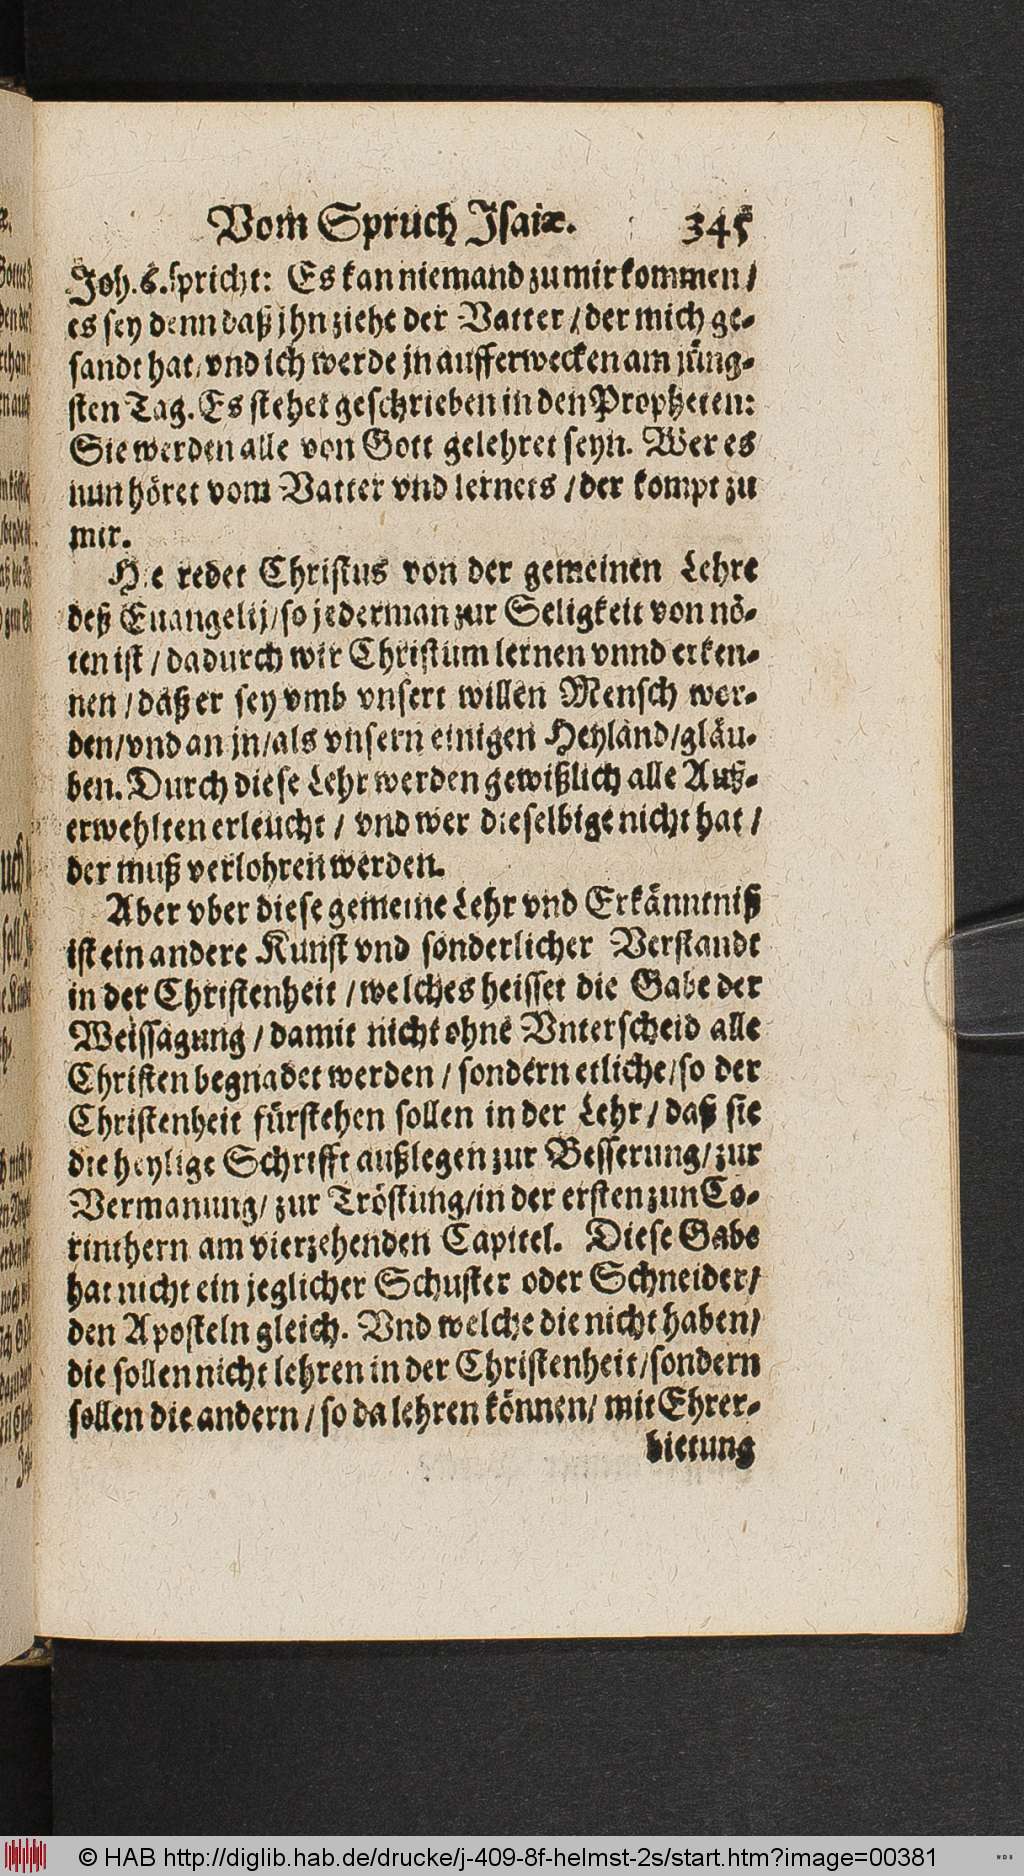 Vom Spruch Isaiæ. 345
Joh. 6. spricht: Es kan niemand zu mir kommen /
es sey denn daß jhn ziehe der Vatter / der mich ge-
sandt hat / vnd ich werde jn aufferwecken am jüng-
sten Tag. Es stehet geschrieben in den Propheten:
Sie werden alle von Gott gelehret seyn. Wer es
nun höret vom Vatter vnd lernets / der kompt zu
mir.
Hie redet Christus von der gemeinen Lehre
deß Euangelij / so jederman zur Seligkeit von nö-
ten ist / dadurch wir Christum lernen vnnd erken-
nen / daß er sey vmb vnsert willen Mensch wor-
den / vnd an jn / als vnsern einigen Heyland / gläu-
ben. Durch diese Lehr werden gewißlich alle Auß-
erwehlten erleucht / vnd wer dieselbige nicht hat /
der muß verlohren werden.
Aber vber diese gemeine Lehr vnd Erkänntniß
ist ein andere Kunst vnd sonderlicher Verstandt
in der Christenheit / welches heisset die Gabe der
Weissagung / damit nicht ohne Vnterscheid alle
Christen begnadet werden / sondern etliche / so der
Christenheit fürstehen sollen in der Lehr / daß sie
die heylige Schrifft außlegen zur Besserung / zur
Vermanung / zur Tröstung / in der ersten zun Co-
rinthern am vierzehenden Capitel. Diese Gabe
hat nicht ein jeglicher Schuster oder Schneider /
den Aposteln gleich. Vnd welche die nicht haben /
die sollen nicht lehren in der Christenheit / sondern
sollen die andern / so da lehren können / mit Ehrer-
bietung
© HAB http://diglib.hab.de/drucke/j-409-8f-helmst-2s/start.htm?image=00381